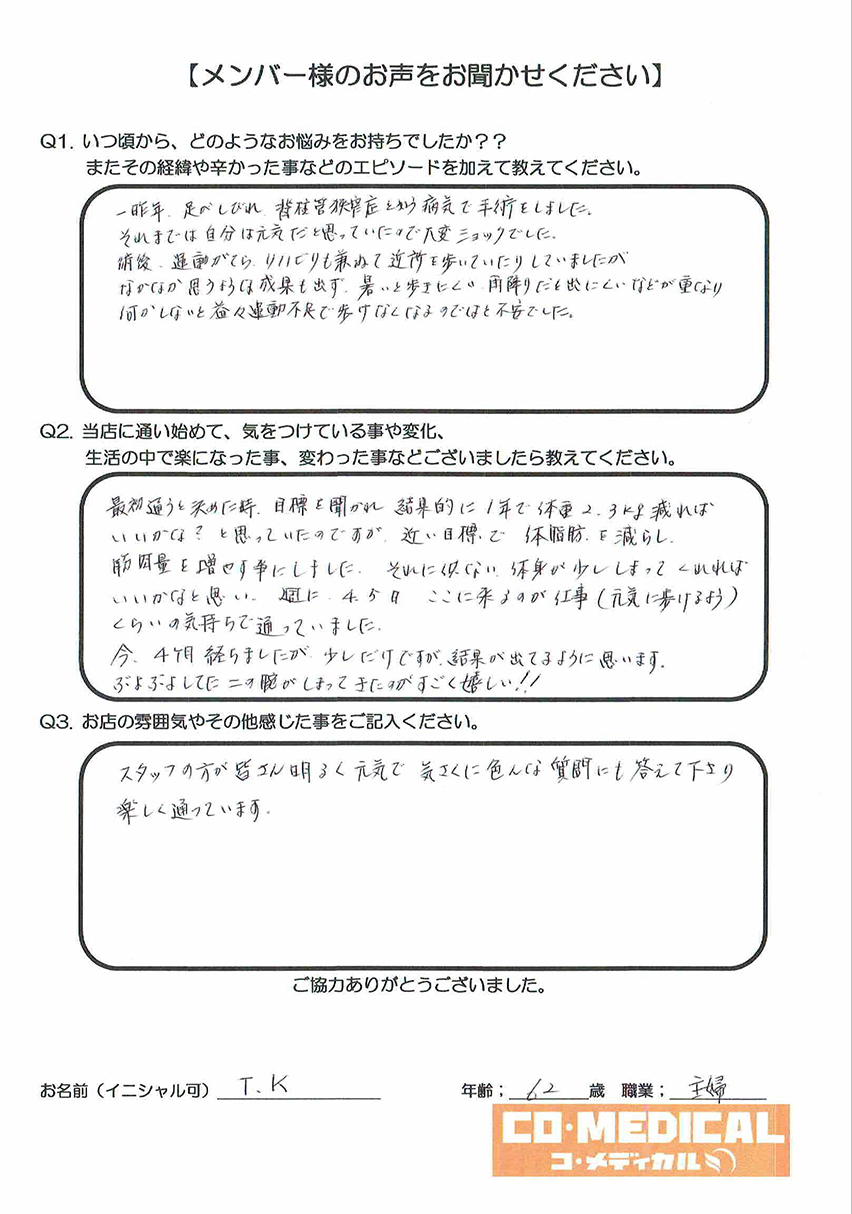 【メンバー様のお声をお聞かせください】
Q1. いつ頃から、どのようなお悩みをお持ちでしたか？？
またその経緯や辛かった事などのエピソードを加えて教えてください。
一昨年、足がしびれ、脊柱管狭窄症という病気で手術をしました。
それまでは自分は元気だと思っていたので大変ショックでした。
術後、運動がてら、リハビリも兼ねて近所を歩いていたりしていましたが
なかなか思うような成果も出ず、暑いと歩きにくい、雨降りだと出にくいなどが重なり
何かしないと益々運動不足で歩けなくなるのではと不安でした。
Q2. 当店に通い始めて、気をつけている事や変化、
生活の中で楽になった事、変わった事などございましたら教えてください。
最初通うと決めた時、目標を聞かれ 結果的に1年で体重2.3kg減れば
いいかな？と思っていたのですが、近い目標で 体脂肪を減らし、
筋肉量を増やす事にしました。それに伴ない、体身が少ししまってくれれば
いいかなと思い、週に4.5日 ここに来るのが仕事（元気に歩けるよう）
くらいの気持ちで通っていました。
今、4ヶ月経ちましたが、少しだけですが、結果が出てるように思います。
ぶよぶよしてた二の腕がしまってきたのがすごく嬉しい!!
Q3. お店の雰囲気やその他感じた事をご記入ください。
スタッフの方が皆さん明るく元気で 気さくに色んな質問にも答えて下さり
楽しく通っています。
ご協力ありがとうございました。
お名前（イニシャル可） T.K 年齢； 62 歳 職業； 主婦
CO・MEDICAL
コ・メディカル